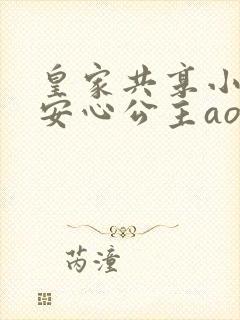 皇家共享小
安心公主ao
芮潼